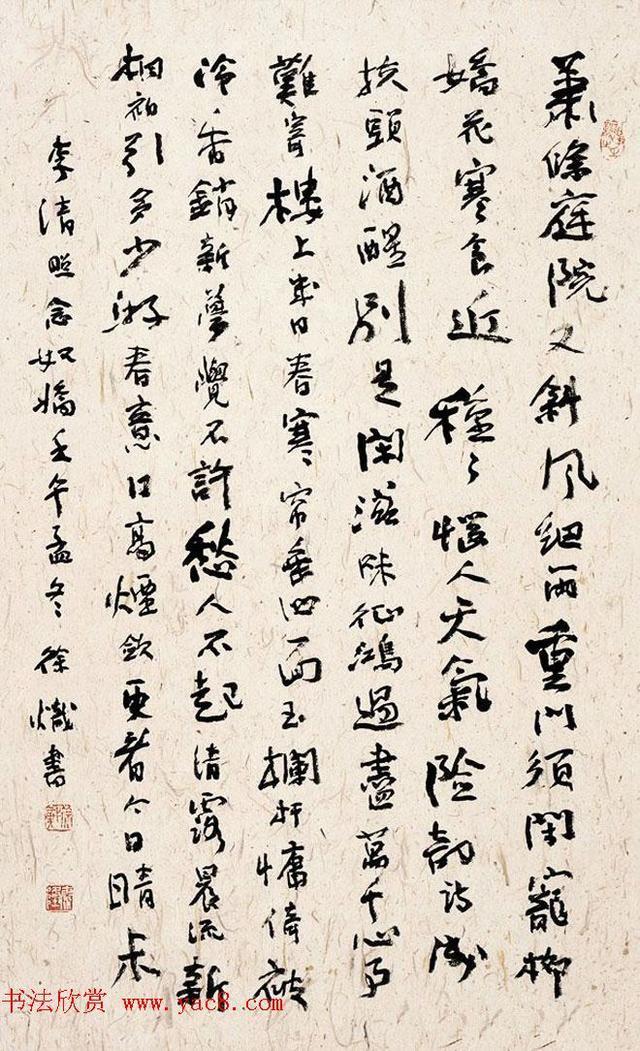 蕭條庭院又斜風細雨重門須閉寵柳
嬌花寒食近種々惱人天氣險韻詩成
扶頭酒醒別是閑滋味征鴻過盡萬千心事
難寄樓上幾日春寒帘垂四面玉攔杆慵倚被
冷香銷新夢覺不許愁人不起清露晨流新
桐初引多少游春意日高煙斂更看今日晴未
李清照念奴嬌壬午孟冬徐熾書
书法欣赏 www.yac8.com